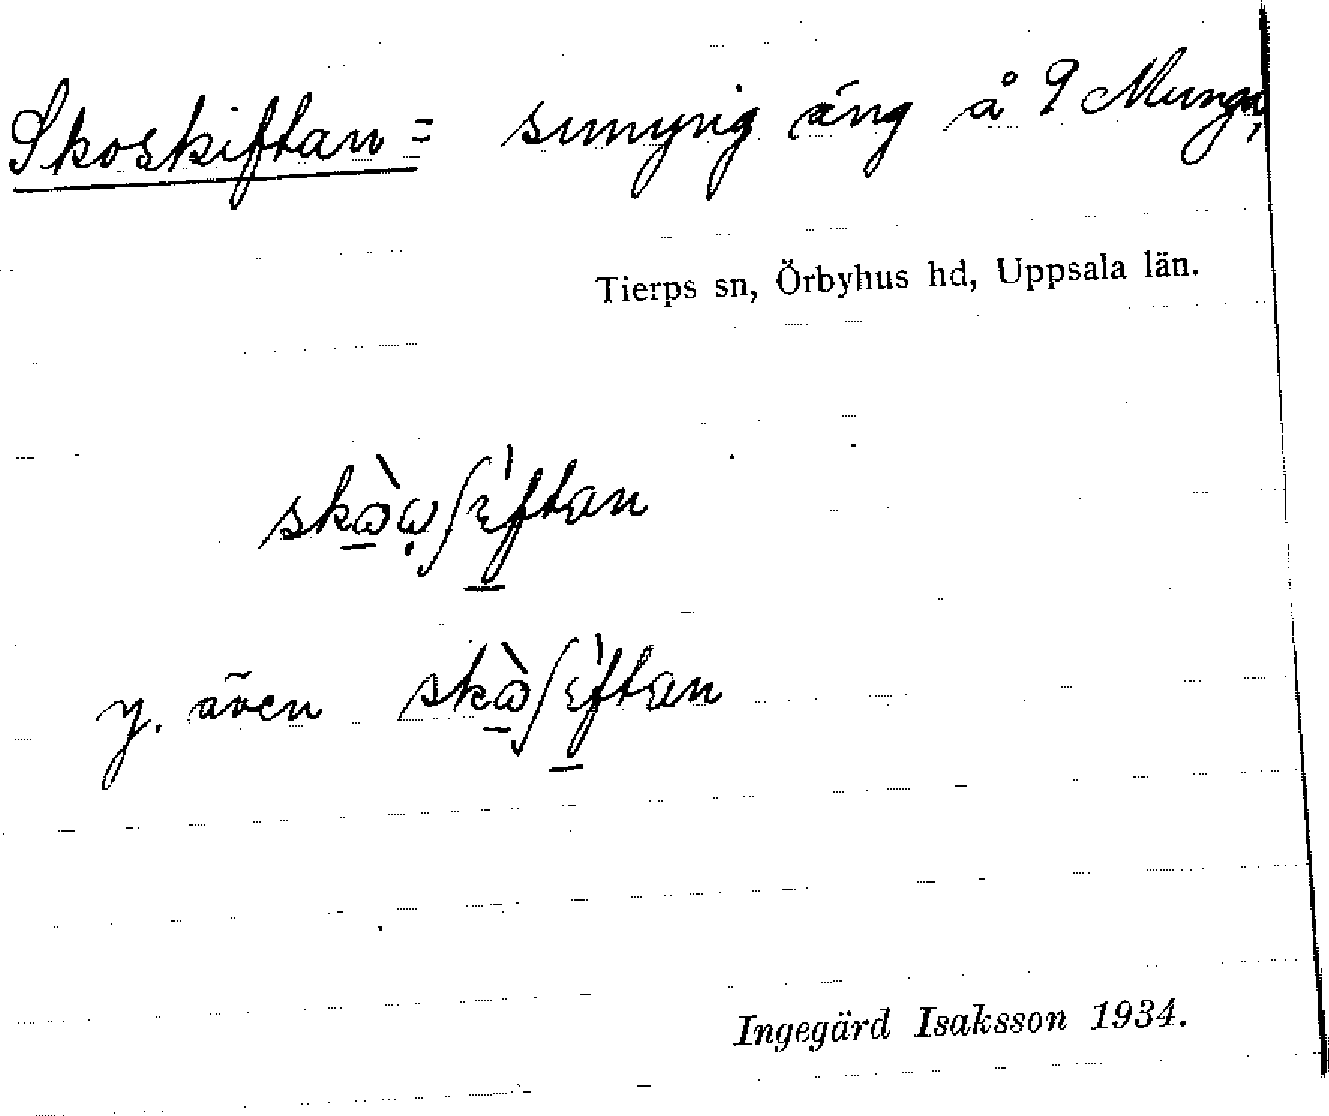 Skoskiftan = sumpig äng å 9 Munga,
Tierps sn, Örbyhus hd, Uppsala län.
y. även
Ingegärd Isaksson 1934.